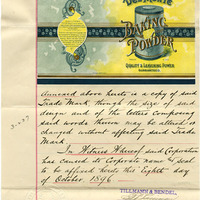 Del Monte
BAKING
POWDER
QUALITY & LEAVENING POWER
GUARANTEED
Annexed above hereto is a copy of said
Trade Mark, though the size of said
design and of the letters composing
said words thereon may be altered or
changed without affecting said Trade
Mark.
In Witness Whereof said Corporation
has caused its Corporate name & seal
to be affixed hereto this Eighth day
of October 1896.
TILLMANN & BENDEL.